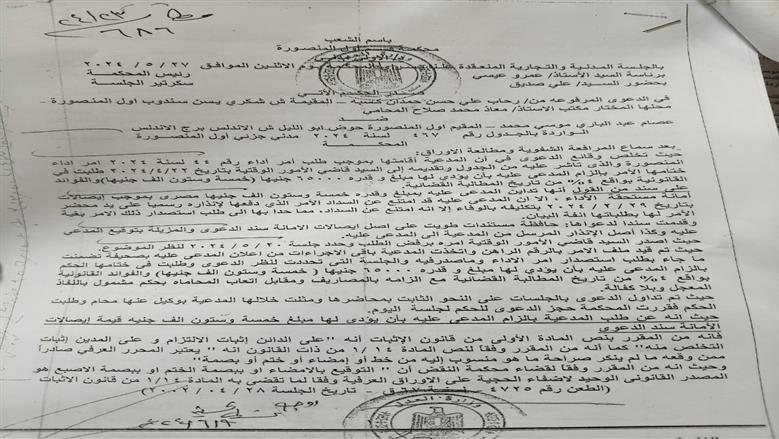 باسم الشعب
محكمة اول المنصورة
بالجلسة المدنية والتجارية المنعقدة علنا بسراي المحكمة يوم الاثنين الموافق ٢٧ / ٥ / ٢٠٢٤
برئاسة السيد الأستاذ/ عمرو عيسي رئيس المحكمة
بحضور السيد/ علي صديق سكرتير الجلسة
صدر الحكم الأتي
في الدعوى المرفوعه من/ رحاب علي حسن حمدان كسبه – المقيمة ش شكري يسن سندوب اول المنصورة –
محلها المختار مكتب الاستاذ/ معاذ محمد صلاح المحامي
ضد
عصام عبد الباري موسي محمد – المقيم اول المنصورة حوض ابو الليل ش الاندلس برج الاندلس
الواردة بالجدول رقم ٤٦٧ لسنة ٢٠٢٤ مدني جزئي أول المنصورة
المحكمة
بعد سماع المرافعة الشفوية ومطالعة الاوراق:
حيث تخلص وقائع الدعوى في أن المدعية أقامتها بموجب طلب أمر أداء رقم ٤٤ لسنة ٢٠٢٤ امر اداء
المنصورة والذى تأشر عليه من الجدول وتقديمه إلى السيد قاضي الأمور الوقتية بتاريخ ٢٠٢٤/٤/٢٢ طلبت في
ختامها الأمر بإلزام المدعى عليه بأن يؤدي لها مبلغ و قدره ٦٥٠٠٠ جنيها (خمسة وستون الف جنيها) والفوائد
القانونية بواقع ٤% من تاريخ المطالبة القضائية
على سند من القول أنها تداين المدعى عليه بمبلغ وقدره خمسة وستون الف جنيها مصرى بموجب إيصالات
أمانة مستحقة الأداء، إلا ان المدعى عليه قد امتنع عن السداد الأمر الذي دفعها لإنذاره رسميا على يد محضر
بتاريخ ٢٩ / ٢ / ٢٠٢٤ بتكليفه بالوفاء إلا انه امتنع عن السداد، مما حدا بها الى طلب استصدار ذلك الامر بغية
الأمر لها بطلباتها آنفة البيان.
وقدمت سندا لدعواها حافظة مستندات طويت على اصل إيصالات الامانة سند الدعوى والمزيلة بتوقيع المدعى
عليه وكذا أصل الإنذار المرسل من المدعية الى المدعى عليه.
حيث اصدر السيد قاضي الأمور الوقتية امره برفض الطلب وحدد جلسة ٢٠ / ٥ / ٢٠٢٤ لنظر الموضوع.
حيث تم قيد ملف الامر بالرقم الراهن واتخذت المدعية باقي الاجراءات من اعلان المدعى عليه بصحيفة تضمنت
ما جاء بطلب استصدار امر الاداء وما صدر فيه والجلسة التي تحددت لنظر الدعوى وطلبت في ختامها الحكم
بإلزام المدعى عليه بأن يؤدي لها مبلغ و قدره ٦٥٠٠٠ جنيها ( خمسة وستون الف جنيها) والفوائد القانونية
بواقع ٤% من تاريخ المطالبة القضائية مع الزامه بالمصاريف ومقابل اتعاب المحاماه بحكم مشمول بالنفاذ
المعجل وبلا كفالة.
حيث تم تداول الدعوى بالجلسات على النحو الثابت بمحاضرها ومثلت خلالها المدعية بوكيل عنها محام وطلبت
الحكم فقررت المحكمة حجز الدعوى للحكم لجلسة اليوم.
حيث أنه عن طلب المدعية بالزام المدعى عليه بأن يؤدى لها مبلغ خمسة وستون الف جنيه قيمة إيصالات
الأمانة سند الدعوى
فأنه من المقرر بنص المادة الأولى من قانون الإثبات أنه "على الدائن إثبات الالتزام و على المدين إثبات
التخلص منه"، كما أنه من المقرر وفقا لنص المادة ١٤ /١ من ذات القانون انه " يعتبر المحرر العرفي صادراً
ممن وقعه ما لم ينكر صراحة ما هو منسوب إليه من خط أو إمضاء أو ختم أو بصمة"
وحيث انه من المقرر وفقا لقضاء محكمة النقض أن " التوقيع بالامضاء أو ببصمة الختم أو ببصمة الاصبع هو
المصدر القانوني الوحيد لاضفاء الحجية على الاوراق العرفية وفقا لما تقضي به المادة ١/١٤ من قانون الاثبات
(الطعن رقم ٤٧٢٥ – تاريخ الجلسة ٢٨ / ٠٤ / ٢٠٠٢)